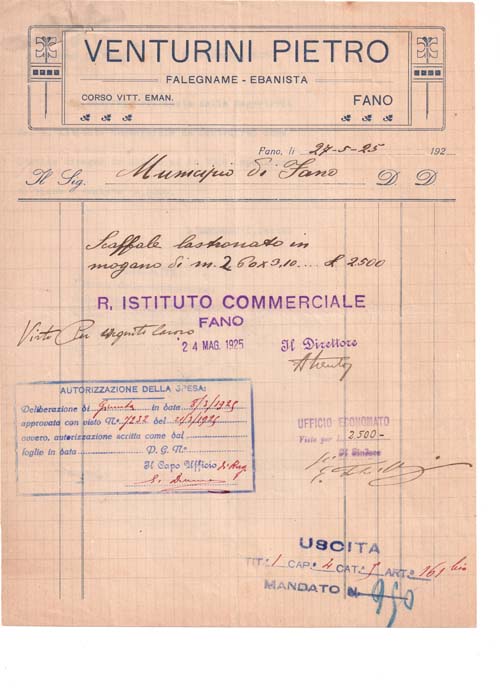 VENTURINI PIETRO
FALEGNAME - EBANISTA
CORSO VITT. EMAN.
FANO
Fano, li 27-5-25 192
Il Sig. Municipio di Fano D. D.
Scaffale lastronato in
mogano di m. 2,60x3,10.... £ 2500
R. ISTITUTO COMMERCIALE
FANO
Visto Per eseguito lavoro
24 MAG. 1925
Il Direttore
AUTORIZZAZIONE DELLA SPESA:
Deliberazione di Giunta in data 5/3/1925
approvata con visto N.° 7232 del
ovvero, autorizzazione scritta come dal
foglio in data P. G. N.°
Il Capo Ufficio di Rag
UFFICIO ECONOMATO
Visto per L. 2500-
Il Sindaco
USCITA
TIT.° 1 CAP.° 4 CAT.ª ART.° 161 bis
MANDATO N. 950